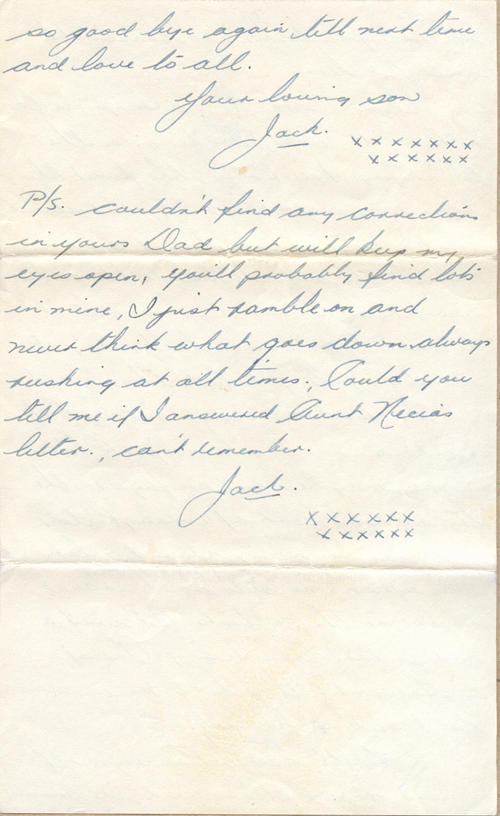 so good bye again till next time
and love to all.
Your loving son
Jack.
x x x x x x x
x x x x x x
P/S. couldn't find any corrections
in yours Dad but will keep my
eyes open, you'll probably find lots
in mine, I just ramble on and
never think what goes down always
rushing at all times., Could you
tell me if I answered Aunt Necias
letter., can't remember.
Jack.
x x x x x x
x x x x x x